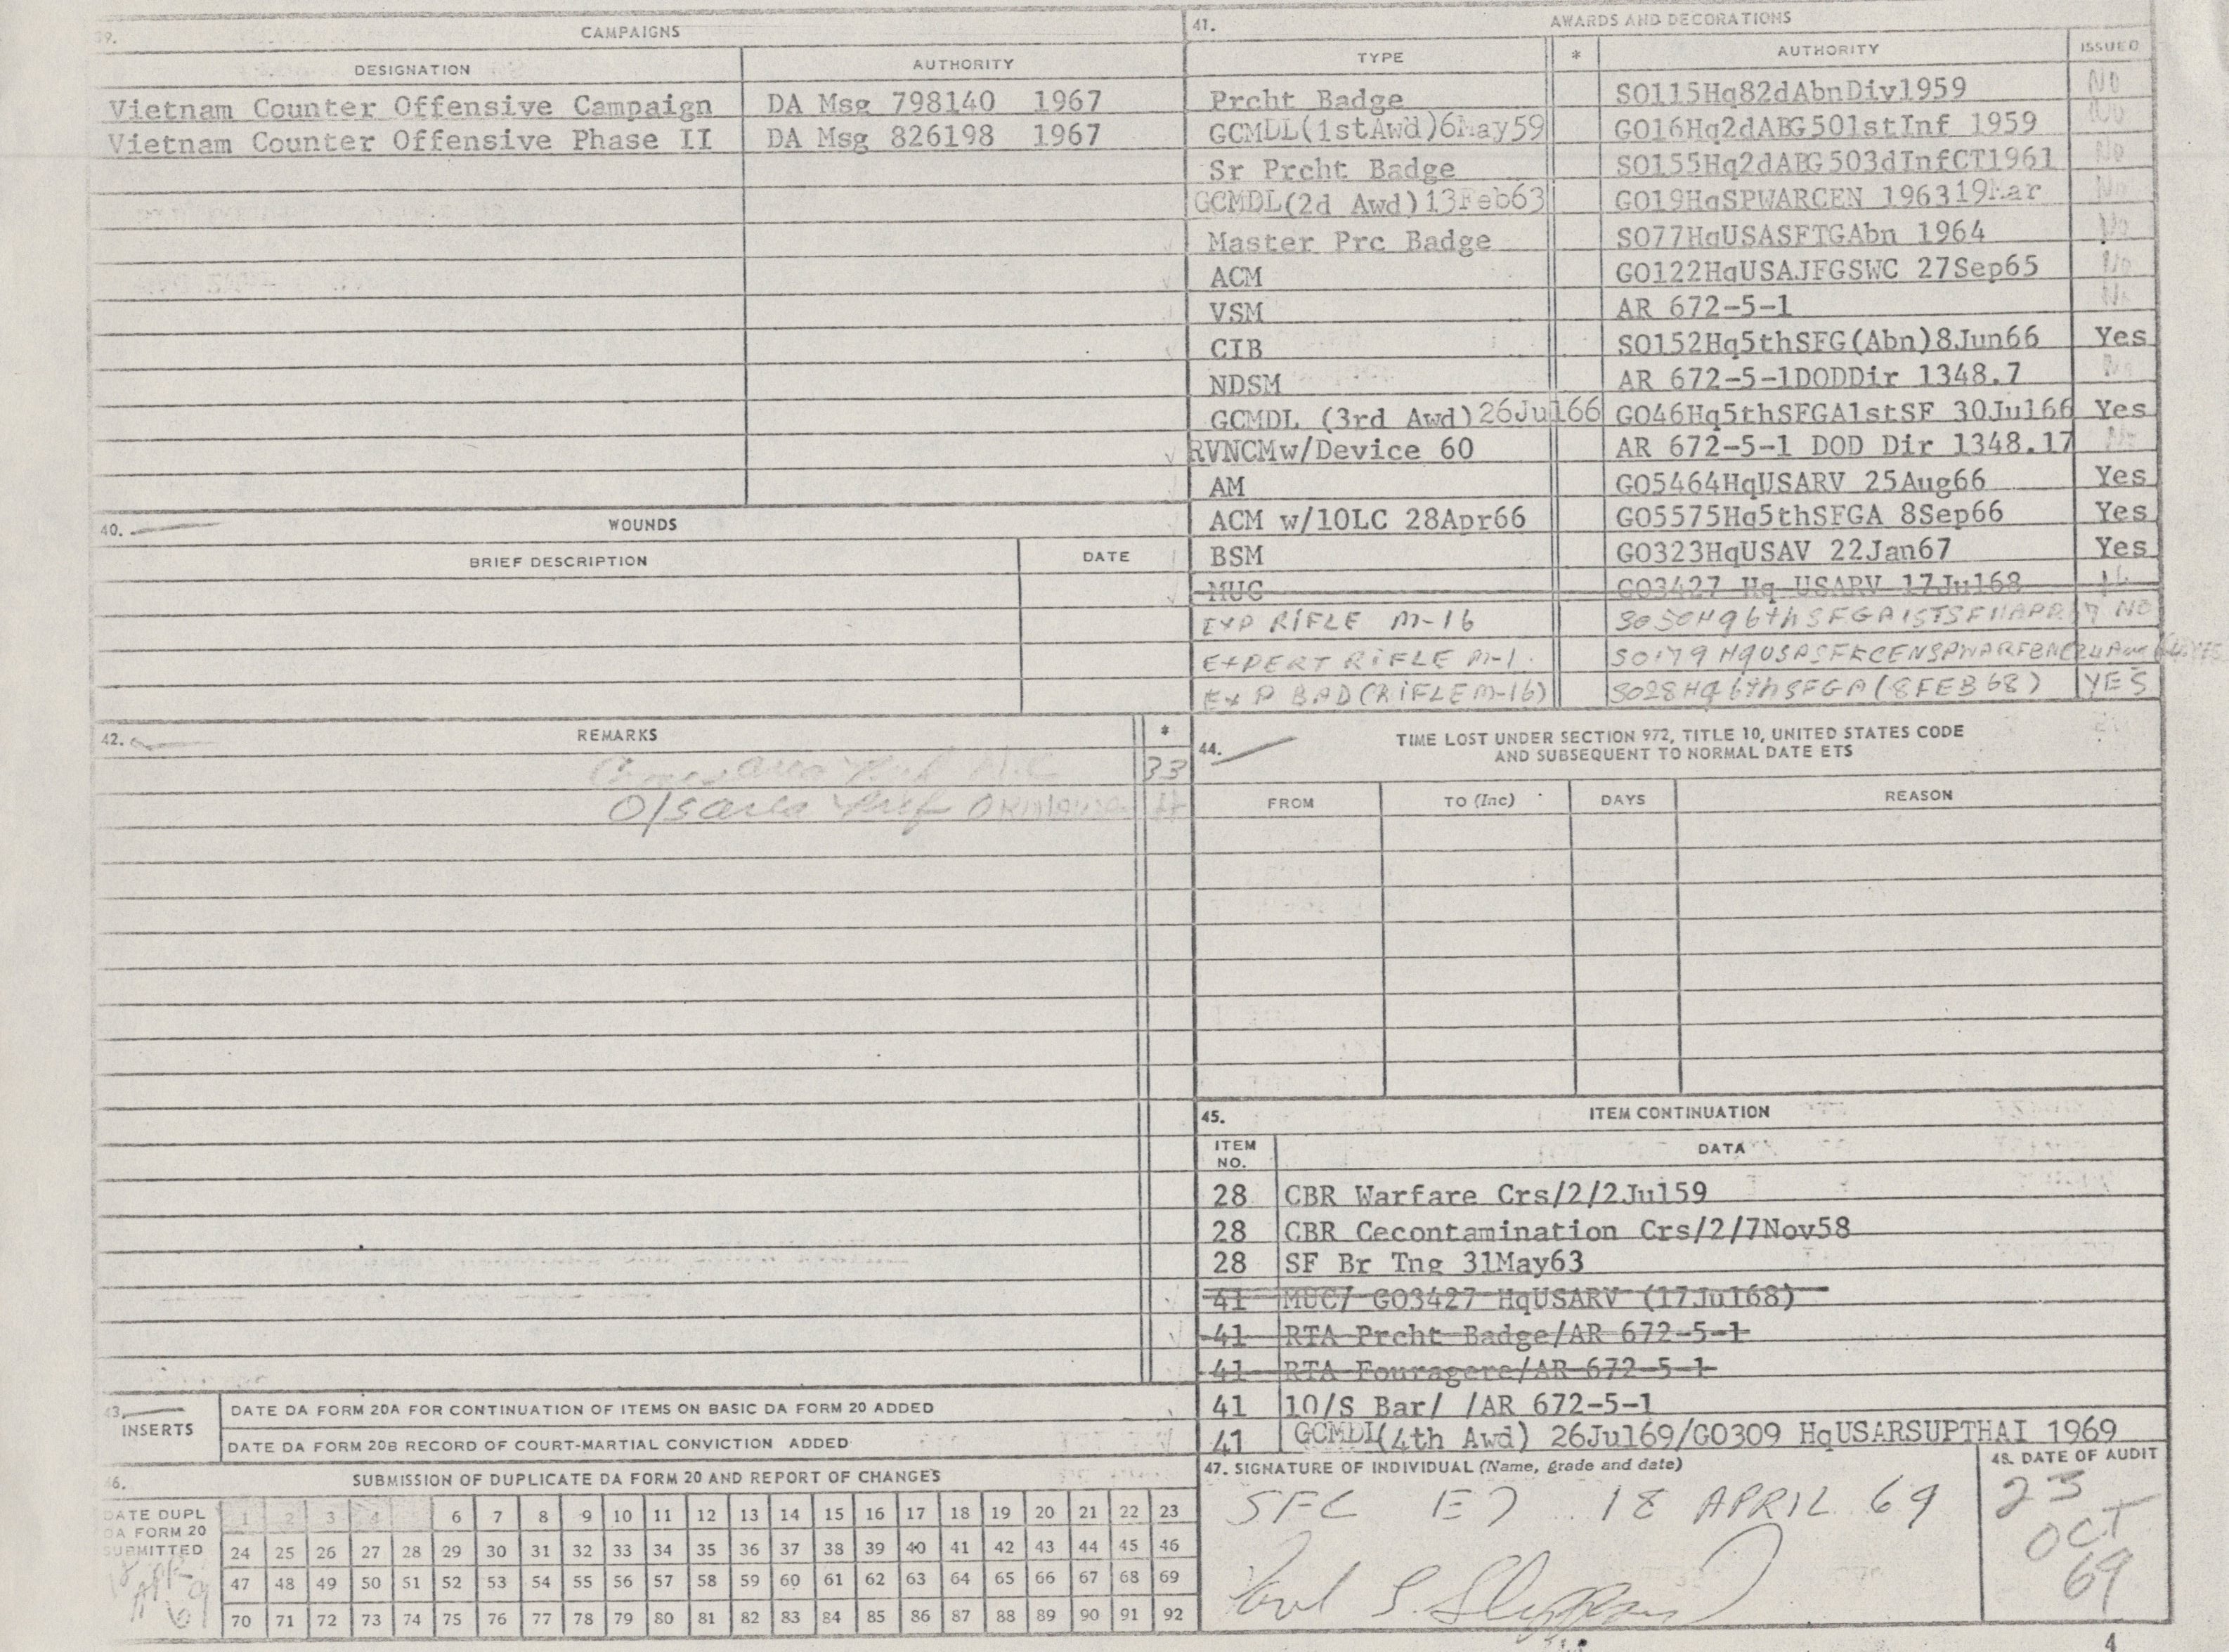 39. CAMPAIGNS
DESIGNATION AUTHORITY
Vietnam Counter Offensive Campaign DA Msg 798140 1967
Vietnam Counter Offensive Phase II DA Msg 826198 1967
40. WOUNDS
BRIEF DESCRIPTION DATE
41. AWARDS AND DECORATIONS
TYPE * AUTHORITY ISSUED
Prcht Badge SO115Hq82dAbnDiv1959 No
GCMDL(1stAwd)6May59 GO16Hq2dABG501stInf 1959 No
Sr Prcht Badge SO155Hq2dABG503dInfCT1961 No
GCMDL(2d Awd)13Feb63 GO19HqSPWARCEN 196319Mar No
Master Prc Badge SO77HqUSASFTGAbn 1964 No
ACM GO122HqUSAJFGSWC 27Sep65 No
VSM AR 672-5-1 No
CIB SO152Hq5thSFG(Abn)8Jun66 Yes
NDSM AR 672-5-1DODDir 1348.7 No
GCMDL (3rd Awd)26Jul66 GO46Hq5thSFGA1stSF 30Jul66 Yes
RVNCMw/Device 60 AR 672-5-1 DOD Dir 1348.17 No
AM GO5464HqUSARV 25Aug66 Yes
ACM w/1OLC 28Apr66 GO5575Hq5thSFGA 8Sep66 Yes
BSM GO323HqUSAV 22Jan67 Yes
MUC GO3427 Hq USARV 17Jul68
EXP RIFLE M-16 SO50Hq6thSFGA1STSF11APR67 NO
EXPERT RIFLE M-1. SO179
EXP BAD(RIFLE M-16) SO28Hq6thSFGA(8FEB68) YES
42. REMARKS *
33
O/S area Pref Okinawa
44. TIME LOST UNDER SECTION 972, TITLE 10, UNITED STATES CODE
AND SUBSEQUENT TO NORMAL DATE ETS
FROM TO (Inc) DAYS REASON
45. ITEM CONTINUATION
ITEM NO. DATA
28 CBR Warfare Crs/2/2Jul59
28 CBR Cecontamination Crs/2/7Nov58
28 SF Br Tng 31May63
41 MUC/ GO3427 HqUSARV (17Jul68)
41 RTA Prcht Badge/AR 672-5-1
41 RTA Fouragere/AR 672-5-1
41 1O/S Bar/ /AR 672-5-1
41 GCMDL(4th Awd) 26Jul69/GO309 HqUSARSUPTHAI 1969
43. INSERTS
DATE DA FORM 20A FOR CONTINUATION OF ITEMS ON BASIC DA FORM 20 ADDED
DATE DA FORM 20B RECORD OF COURT-MARTIAL CONVICTION ADDED
46. SUBMISSION OF DUPLICATE DA FORM 20 AND REPORT OF CHANGES
DATE DUPL DA FORM 20 SUBMITTED
1 2 3 4 6 7 8 9 10 11 12 13 14 15 16 17 18 19 20 21 22 23
24 25 26 27 28 29 30 31 32 33 34 35 36 37 38 39 40 41 42 43 44 45 46
47 48 49 50 51 52 53 54 55 56 57 58 59 60 61 62 63 64 65 66 67 68 69
70 71 72 73 74 75 76 77 78 79 80 81 82 83 84 85 86 87 88 89 90 91 92
18 APR 69
47. SIGNATURE OF INDIVIDUAL (Name, grade and date)
SFC E7 18 APRIL 69
48. DATE OF AUDIT
23
OCT
69
4